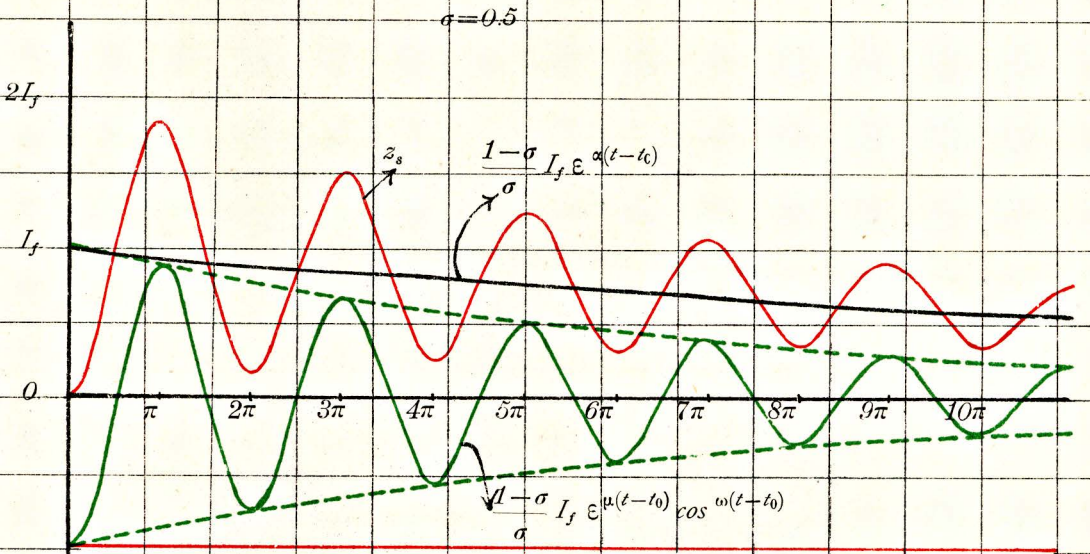 σ=0.5
2I_f
z_s
1-σ
σ
I_f ε^α(t-t₀)
I_f
0
π 2π 3π 4π 5π 6π 7π 8π 9π 10π
1-σ
σ
I_f ε^μ(t-t₀) cos ω(t-t₀)